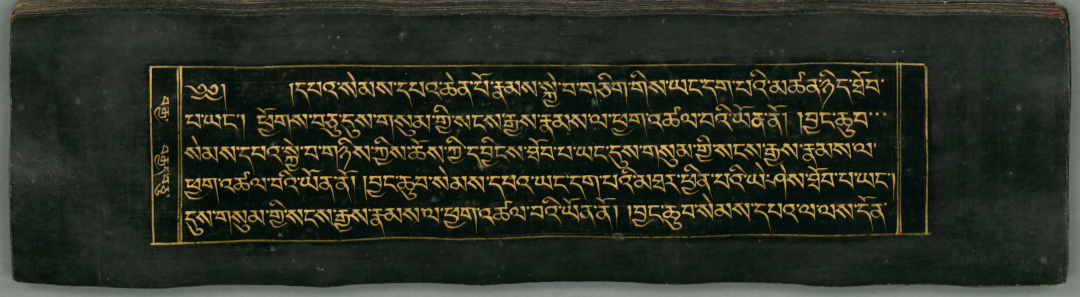 ༄༅། །དཔའ་སེམས་དཔའ་ཆེན་པོ་རྣམས་སྐྱེ་བ་གཅིག་གིས་ཡང་དག་པའི་མཚན་ཉིད་ཐོབ་
པ་ཡང་། ཕྱོགས་བཅུ་དུས་གསུམ་གྱི་སངས་རྒྱས་རྣམས་ལ་ཕྱག་འཚལ་བའི་ཡོན་ནོ། །བྱང་ཆུབ་
སེམས་དཔའ་སྐྱེ་བ་གཉིས་ཀྱིས་ཆོས་ཀྱི་དབྱིངས་ཐོབ་པ་ཡང་དུས་གསུམ་གྱི་སངས་རྒྱས་རྣམས་ལ་
ཕྱག་འཚལ་བའི་ཡོན་ནོ། །བྱང་ཆུབ་སེམས་དཔའ་ཡང་དག་པའི་མཐར་ཕྱིན་པའི་ཡེ་ཤེས་ཐོབ་པ་ཡང་།
དུས་གསུམ་གྱི་སངས་རྒྱས་རྣམས་ལ་ཕྱག་འཚལ་བའི་ཡོན་ནོ། །བྱང་ཆུབ་སེམས་དཔའ་ལ་ལས་དོན་